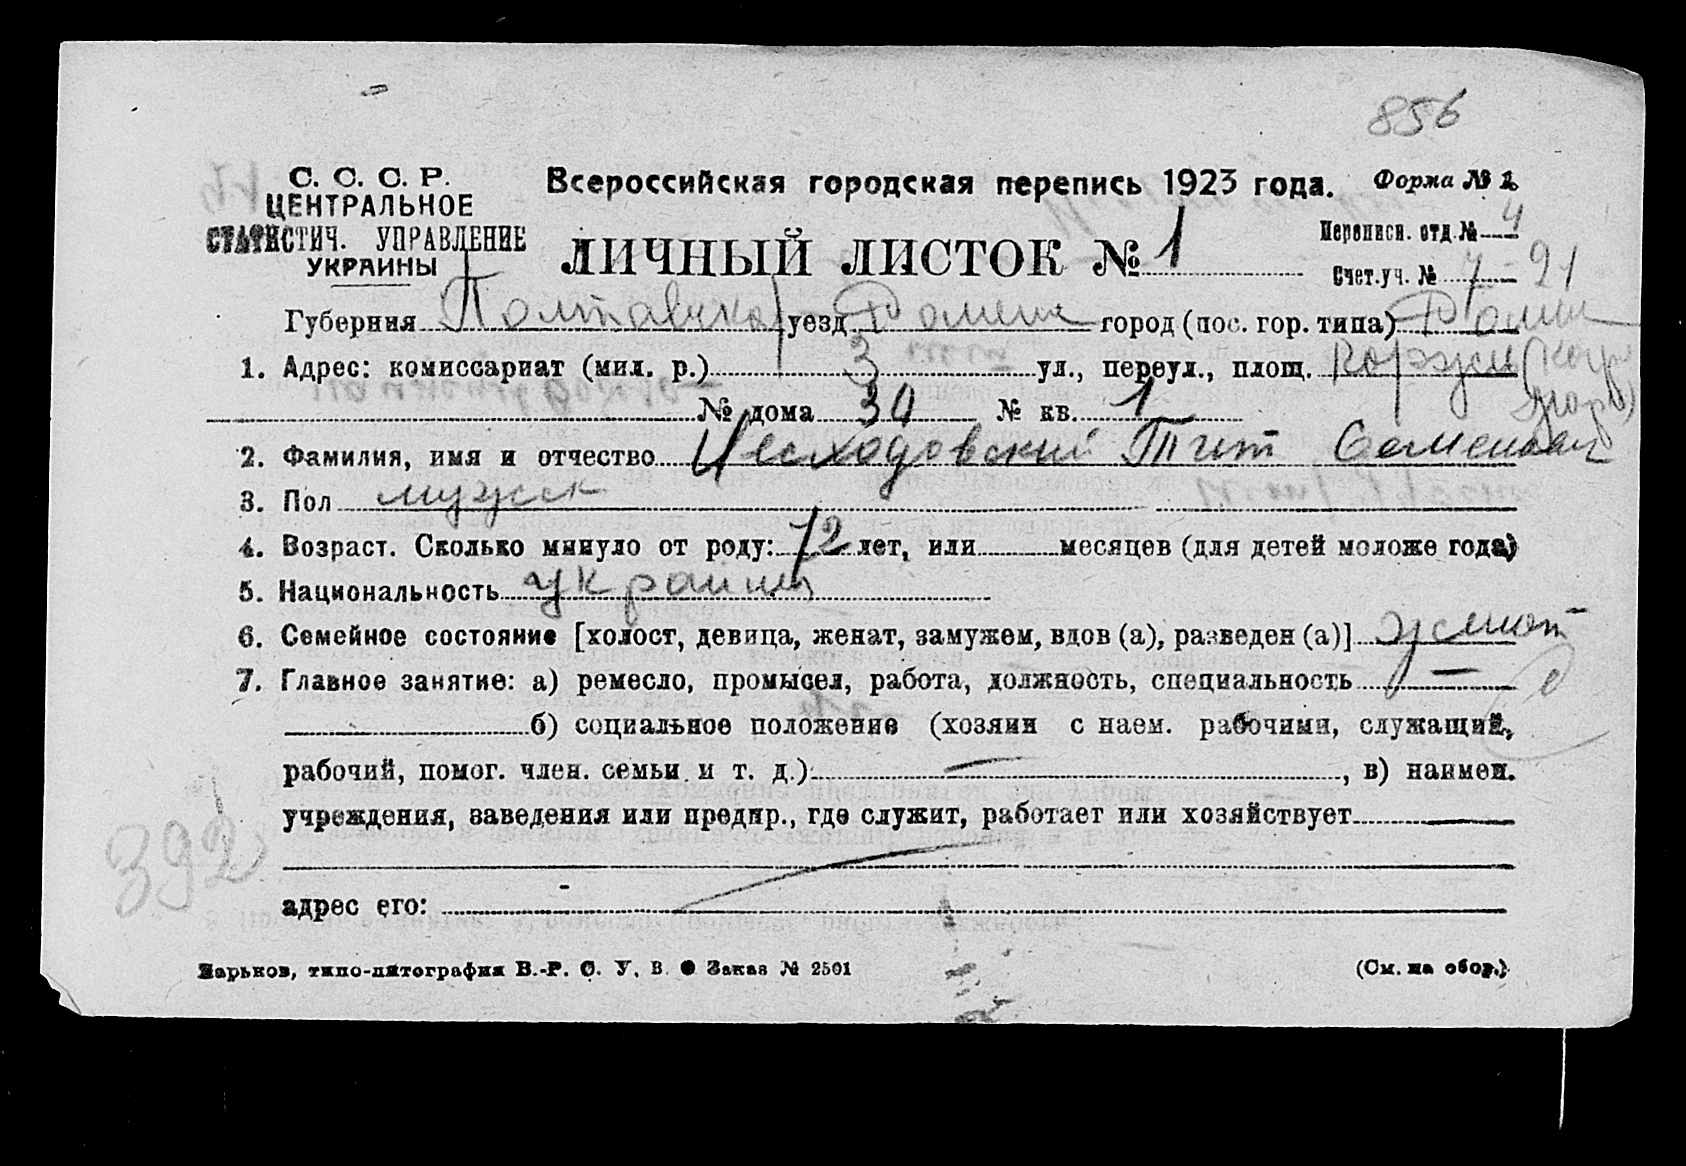 856
С. С. С. Р.
ЦЕНТРАЛЬНОЕ
СТАТИСТИЧ. УПРАВЛЕНИЕ
УКРАИНЫ
Всероссийская городская перепись 1923 года.
Форма № 1
ЛИЧНЫЙ ЛИСТОК № 1
Переписн. отд. № 4
Счет. уч. № 7-21
Губерния Полтавска уезд Ромен город (пос. гор. типа) Ромны
1. Адрес: комиссариат (мил. р.) 3 ул., переул., площ. Коржи
№ дома 34 № кв. 1
2. Фамилия, имя и отчество Исходовский Тит Семенович
3. Пол мужск
4. Возраст. Сколько минуло от роду: 72 лет, или месяцев (для детей моложе года)
5. Национальность украин
6. Семейное состояние [холост, девица, женат, замужем, вдов (а), разведен (а)] женат
7. Главное занятие: а) ремесло, промысел, работа, должность, специальность —
б) социальное положение (хозяин с наем. рабочими, служащий,
рабочий, помог. член. семьи и т. д.) — , в) наимен.
учреждения, заведения или предпр., где служит, работает или хозяйствует
392
адрес его:
Харьков, типо-литография В.-Р. С. У. В. О Заказ № 2501
(См. на обор.)